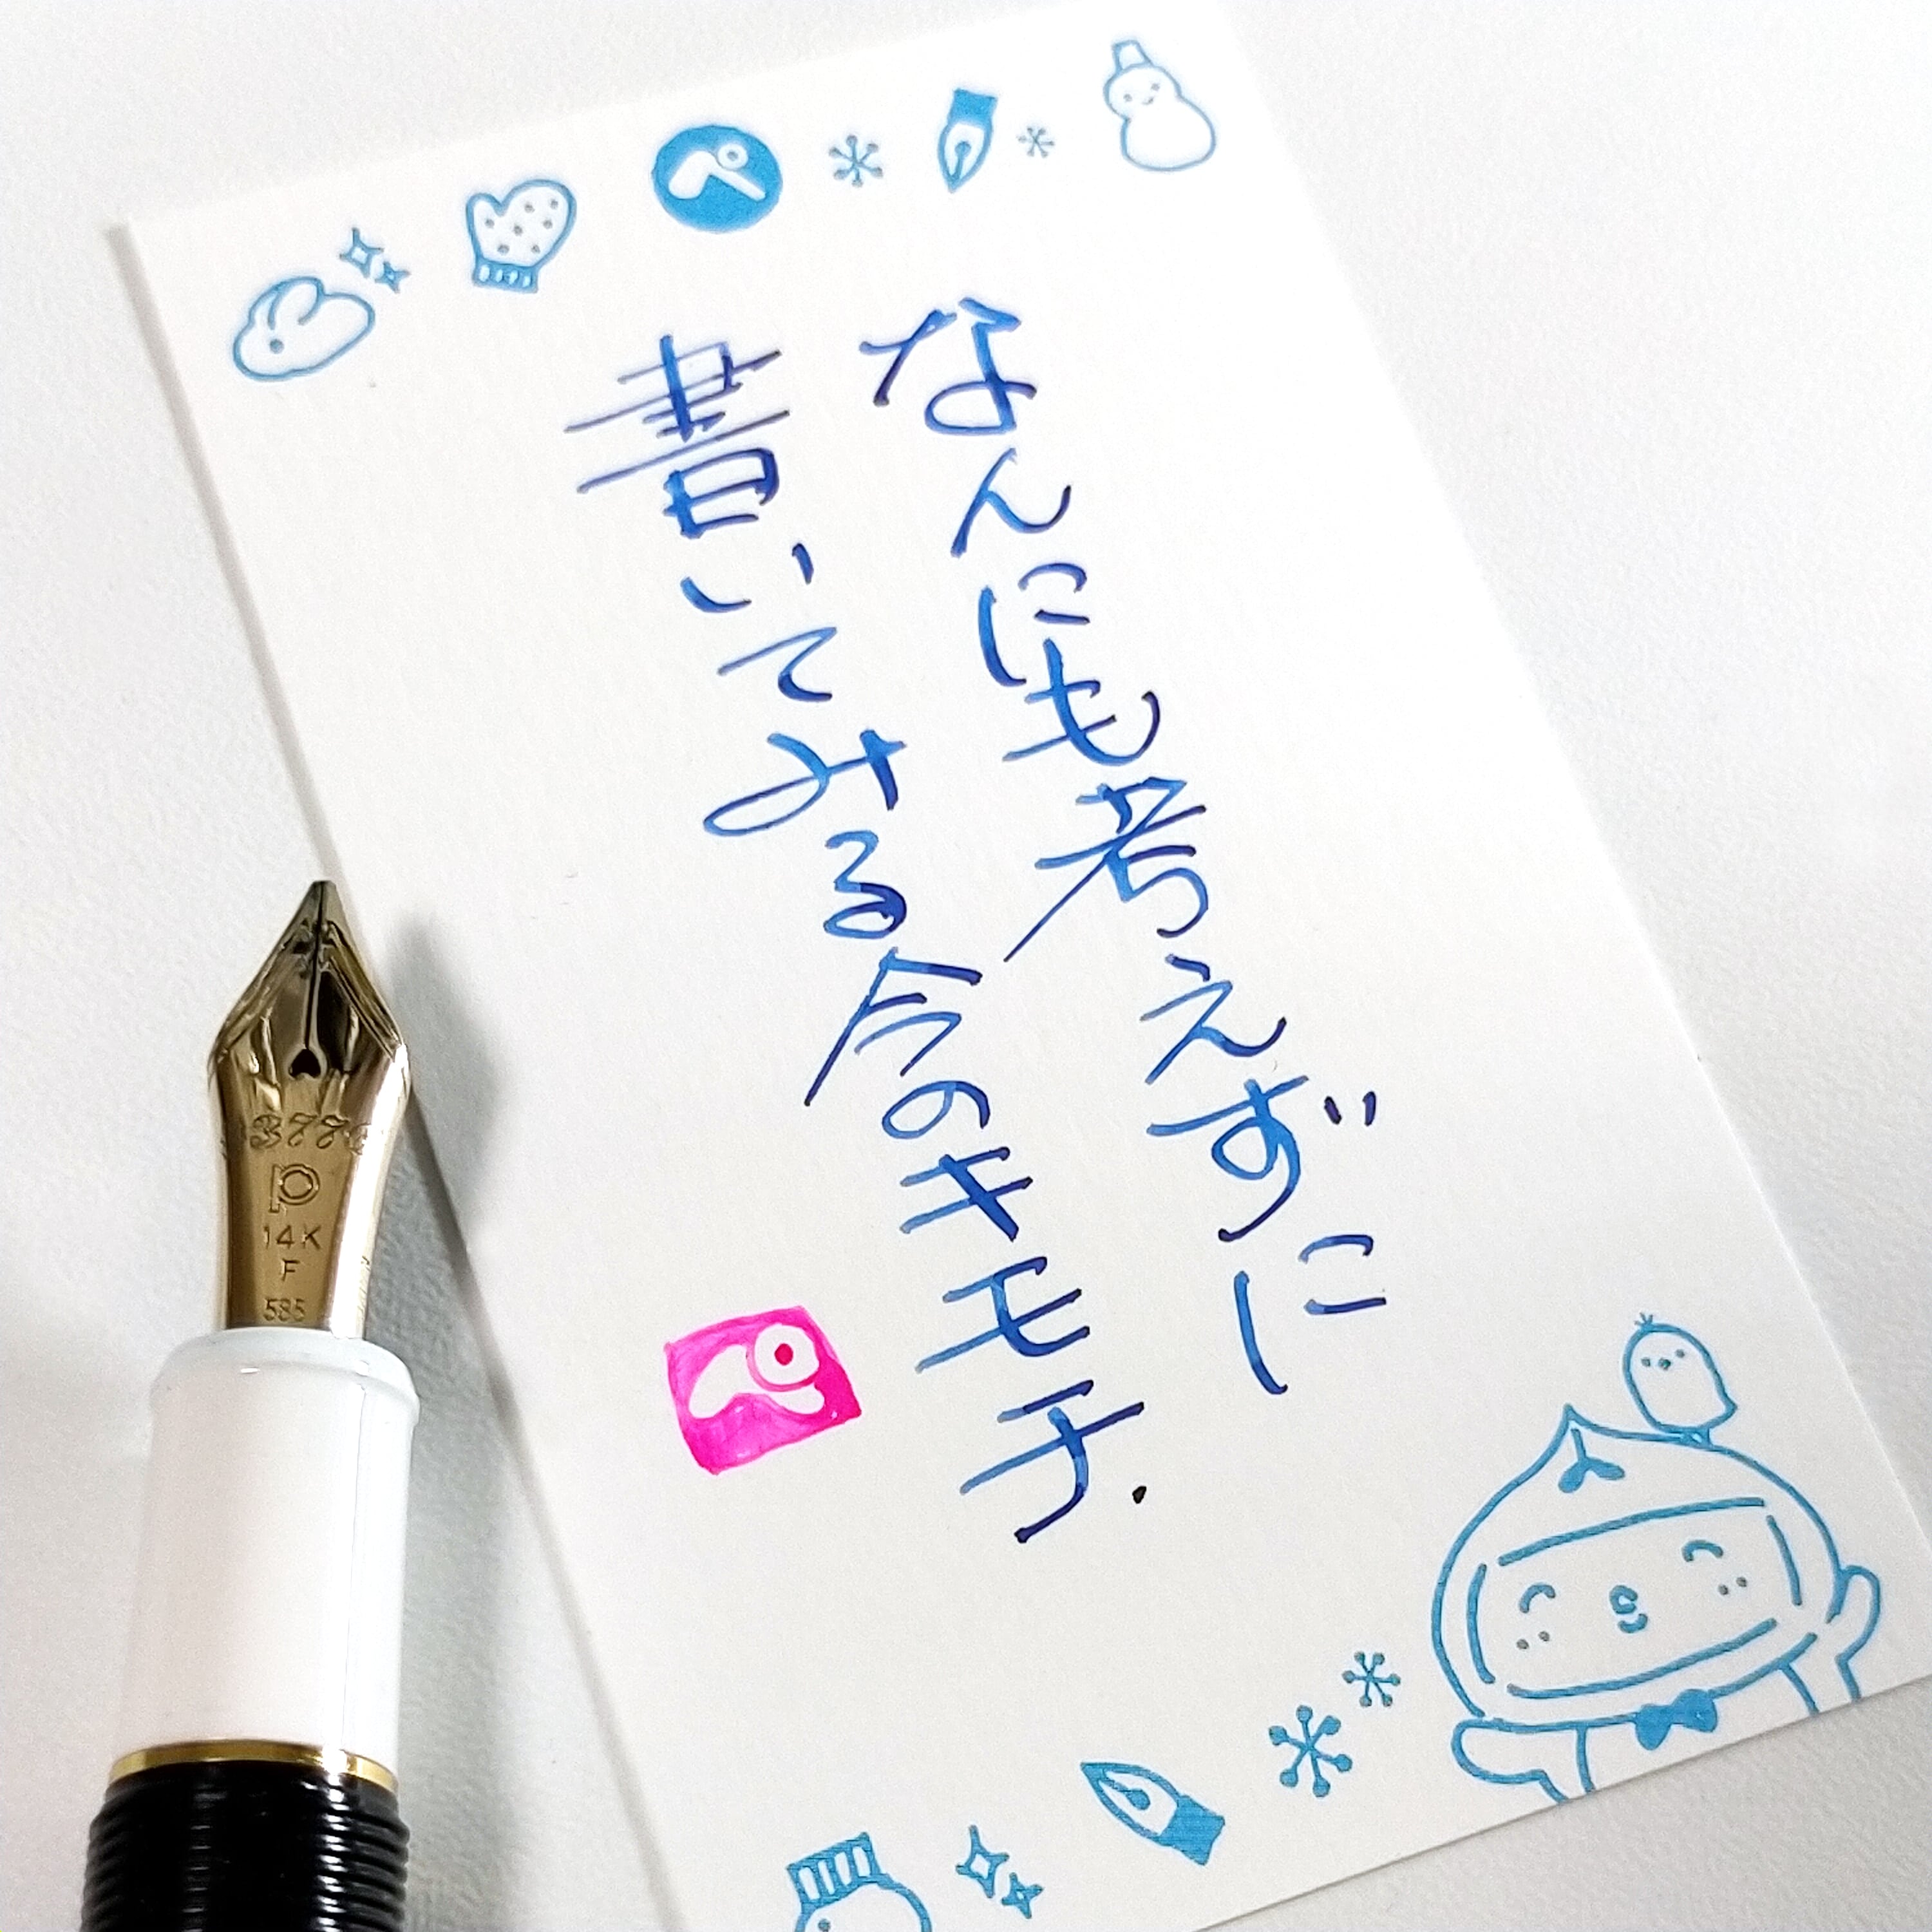 なんにも考えずに
書いてみる今のキモチ.
ペ
ペ
3776
P
14K
F
585